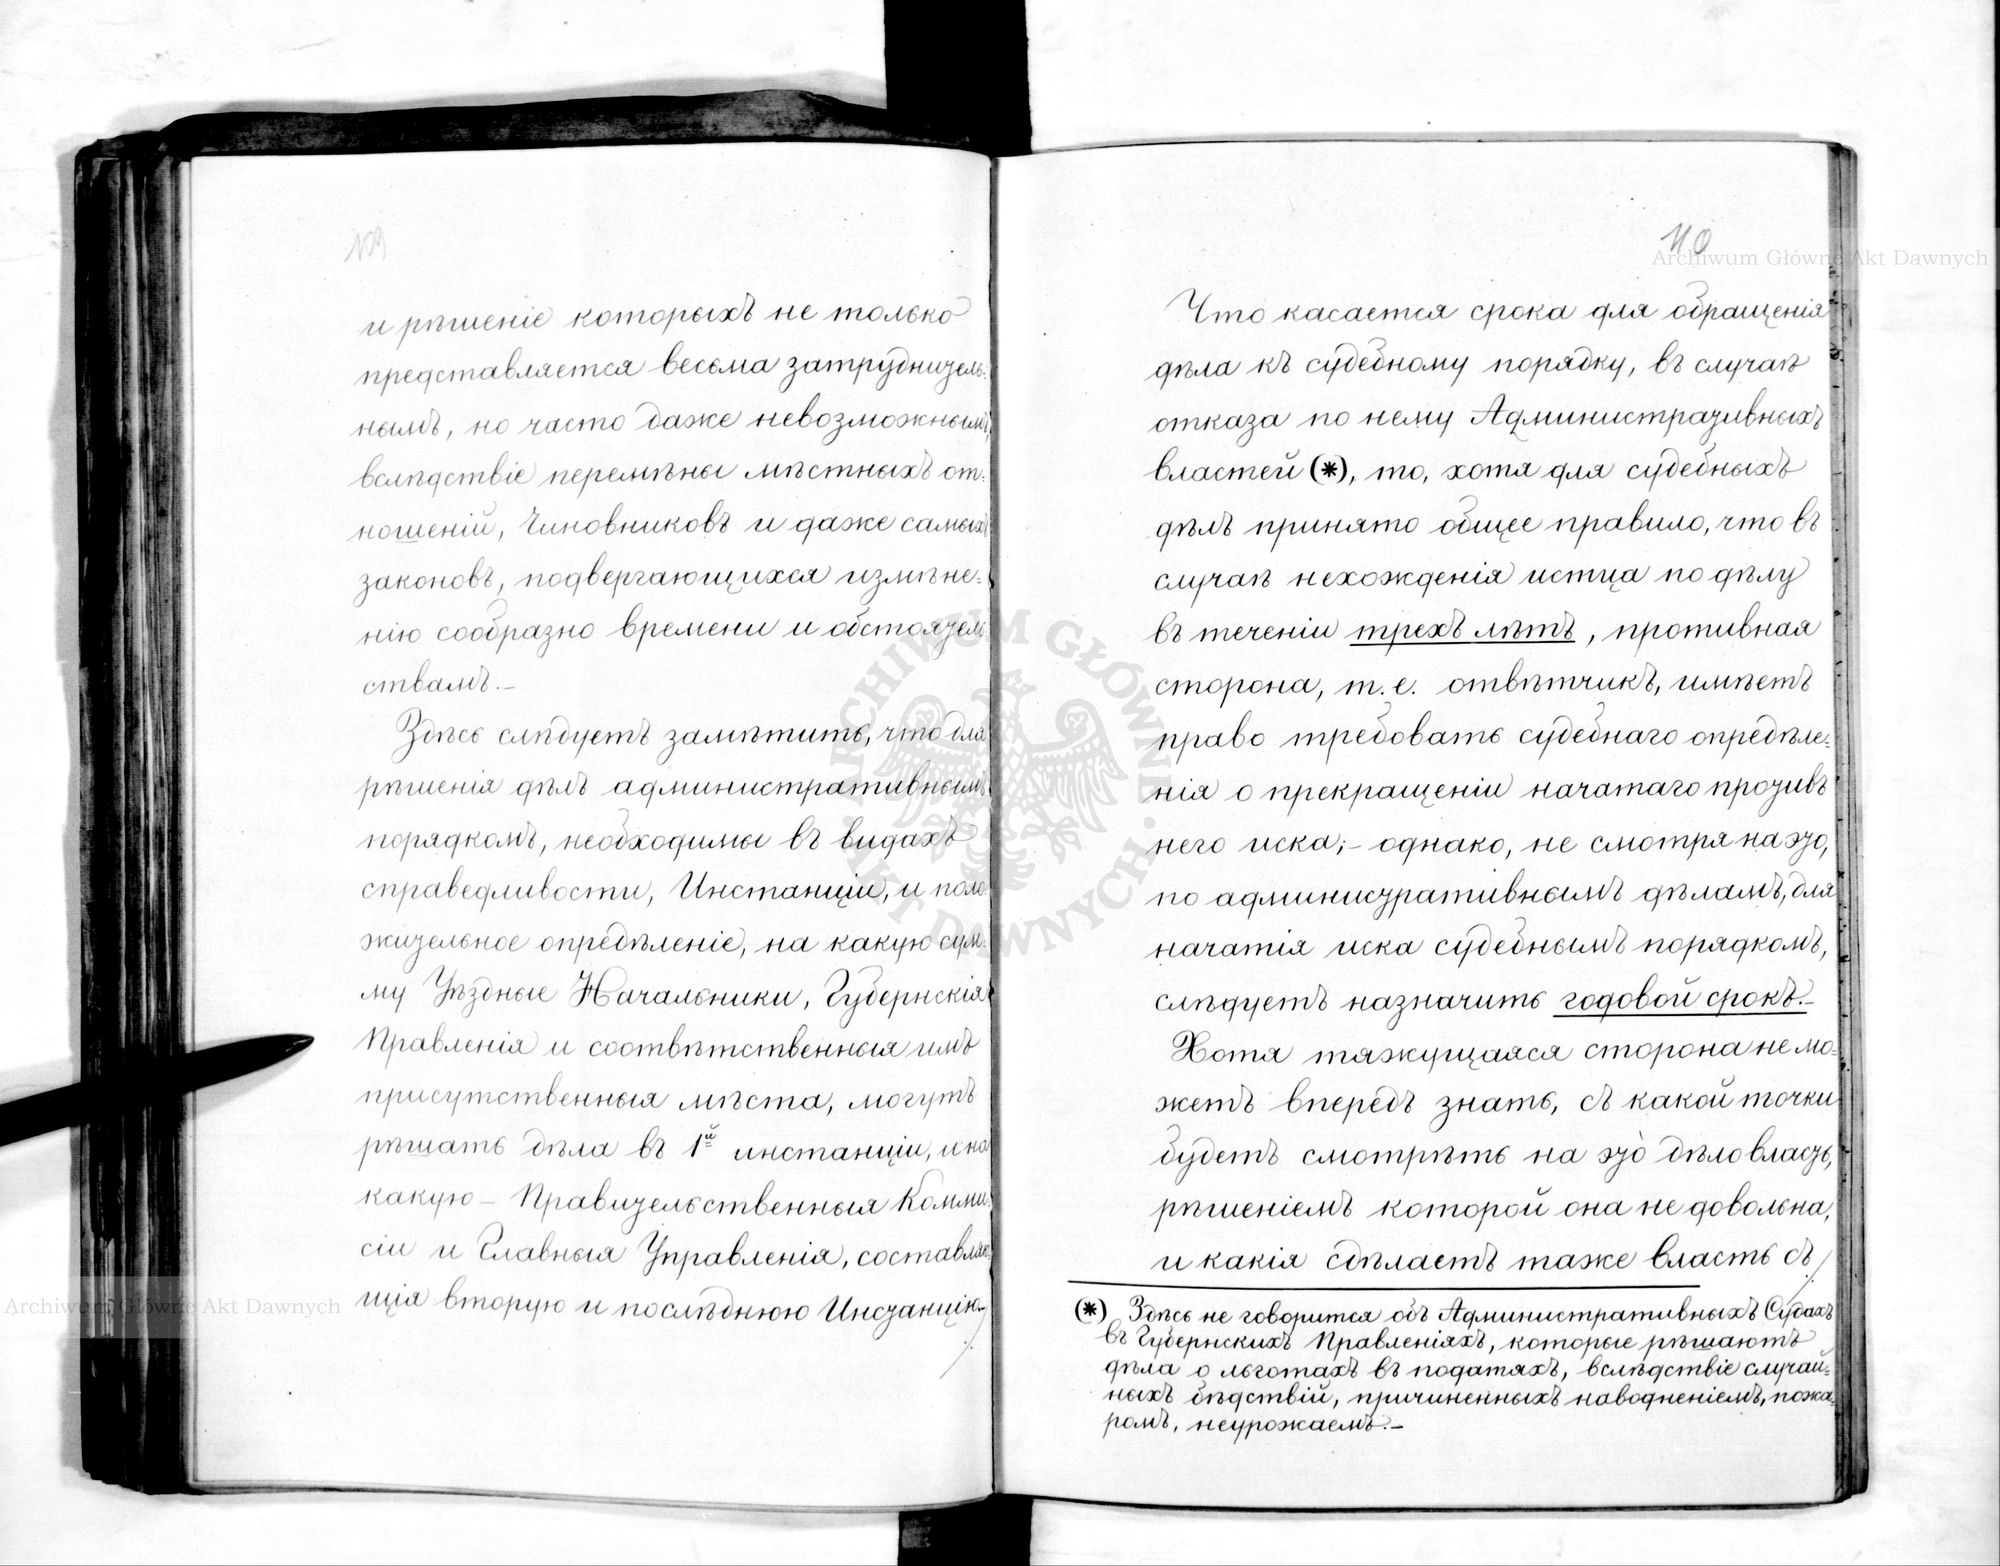 109
и рѣшеніе которыхъ не только
представляется весьма затруднитель-
нымъ, но часто даже невозможнымъ,
вслѣдствіе перемѣны мѣстныхъ от-
ношеній, Чиновниковъ и даже самыхъ
законовъ, подвергающихся измѣне-
нію сообразно времени и обстоятель
ствамъ.—
Здѣсь слѣдуетъ замѣтить, что для
рѣшенія дѣлъ административнымъ
порядкомъ, необходимы въ видахъ
справедливости, Инстанціи, и поло
жительное опредѣленіе, на какую сум-
му Уѣздные Начальники, Губернскія
Правленія и соотвѣтственныя имъ
присутственныя мѣста, могутъ
рѣшать дѣла въ 1й инстанціи, и на
какую — Правительственныя Комми-
сіи и Главныя Управленія, составляю
щія вторую и послѣднюю Инстанцію
110
Что касается срока для обращенія
дѣла къ судебному порядку, въ случаѣ
отказа по нему Административныхъ
властей (*), то, хотя для судебныхъ
дѣлъ принято общее правило, что въ
случаѣ нехожденія истца по дѣлу
въ теченіи трехъ лѣтъ, противная
сторона, т. е. отвѣтчикъ, имѣетъ
право требовать судебнаго опредѣле-
нія о прекращеніи начатаго противъ
него иска; — однако, не смотря на это,
по административнымъ дѣламъ, для
начатія иска судебнымъ порядкомъ,
слѣдуетъ назначить годовой срокъ.—
Хотя тяжущаяся сторона не мо-
жетъ впередъ знать, съ какой точки
будетъ смотрѣть на это дѣло власть,
рѣшеніемъ которой она не довольна,
и какія сдѣлаетъ таже власть съ
(*) Здѣсь не говорится объ Административныхъ Судахъ
въ Губернскихъ Правленіяхъ, которые рѣшаютъ
дѣла о льготахъ въ податяхъ, вслѣдствіе случай-
ныхъ бѣдствій, причиненныхъ наводненіемъ, пожа-
ромъ, неурожаемъ.—
Archiwum Główne Akt Dawnych
Archiwum Główne Akt Dawnych
ARCHIWUM GŁÓWNE AKT DAWNYCH